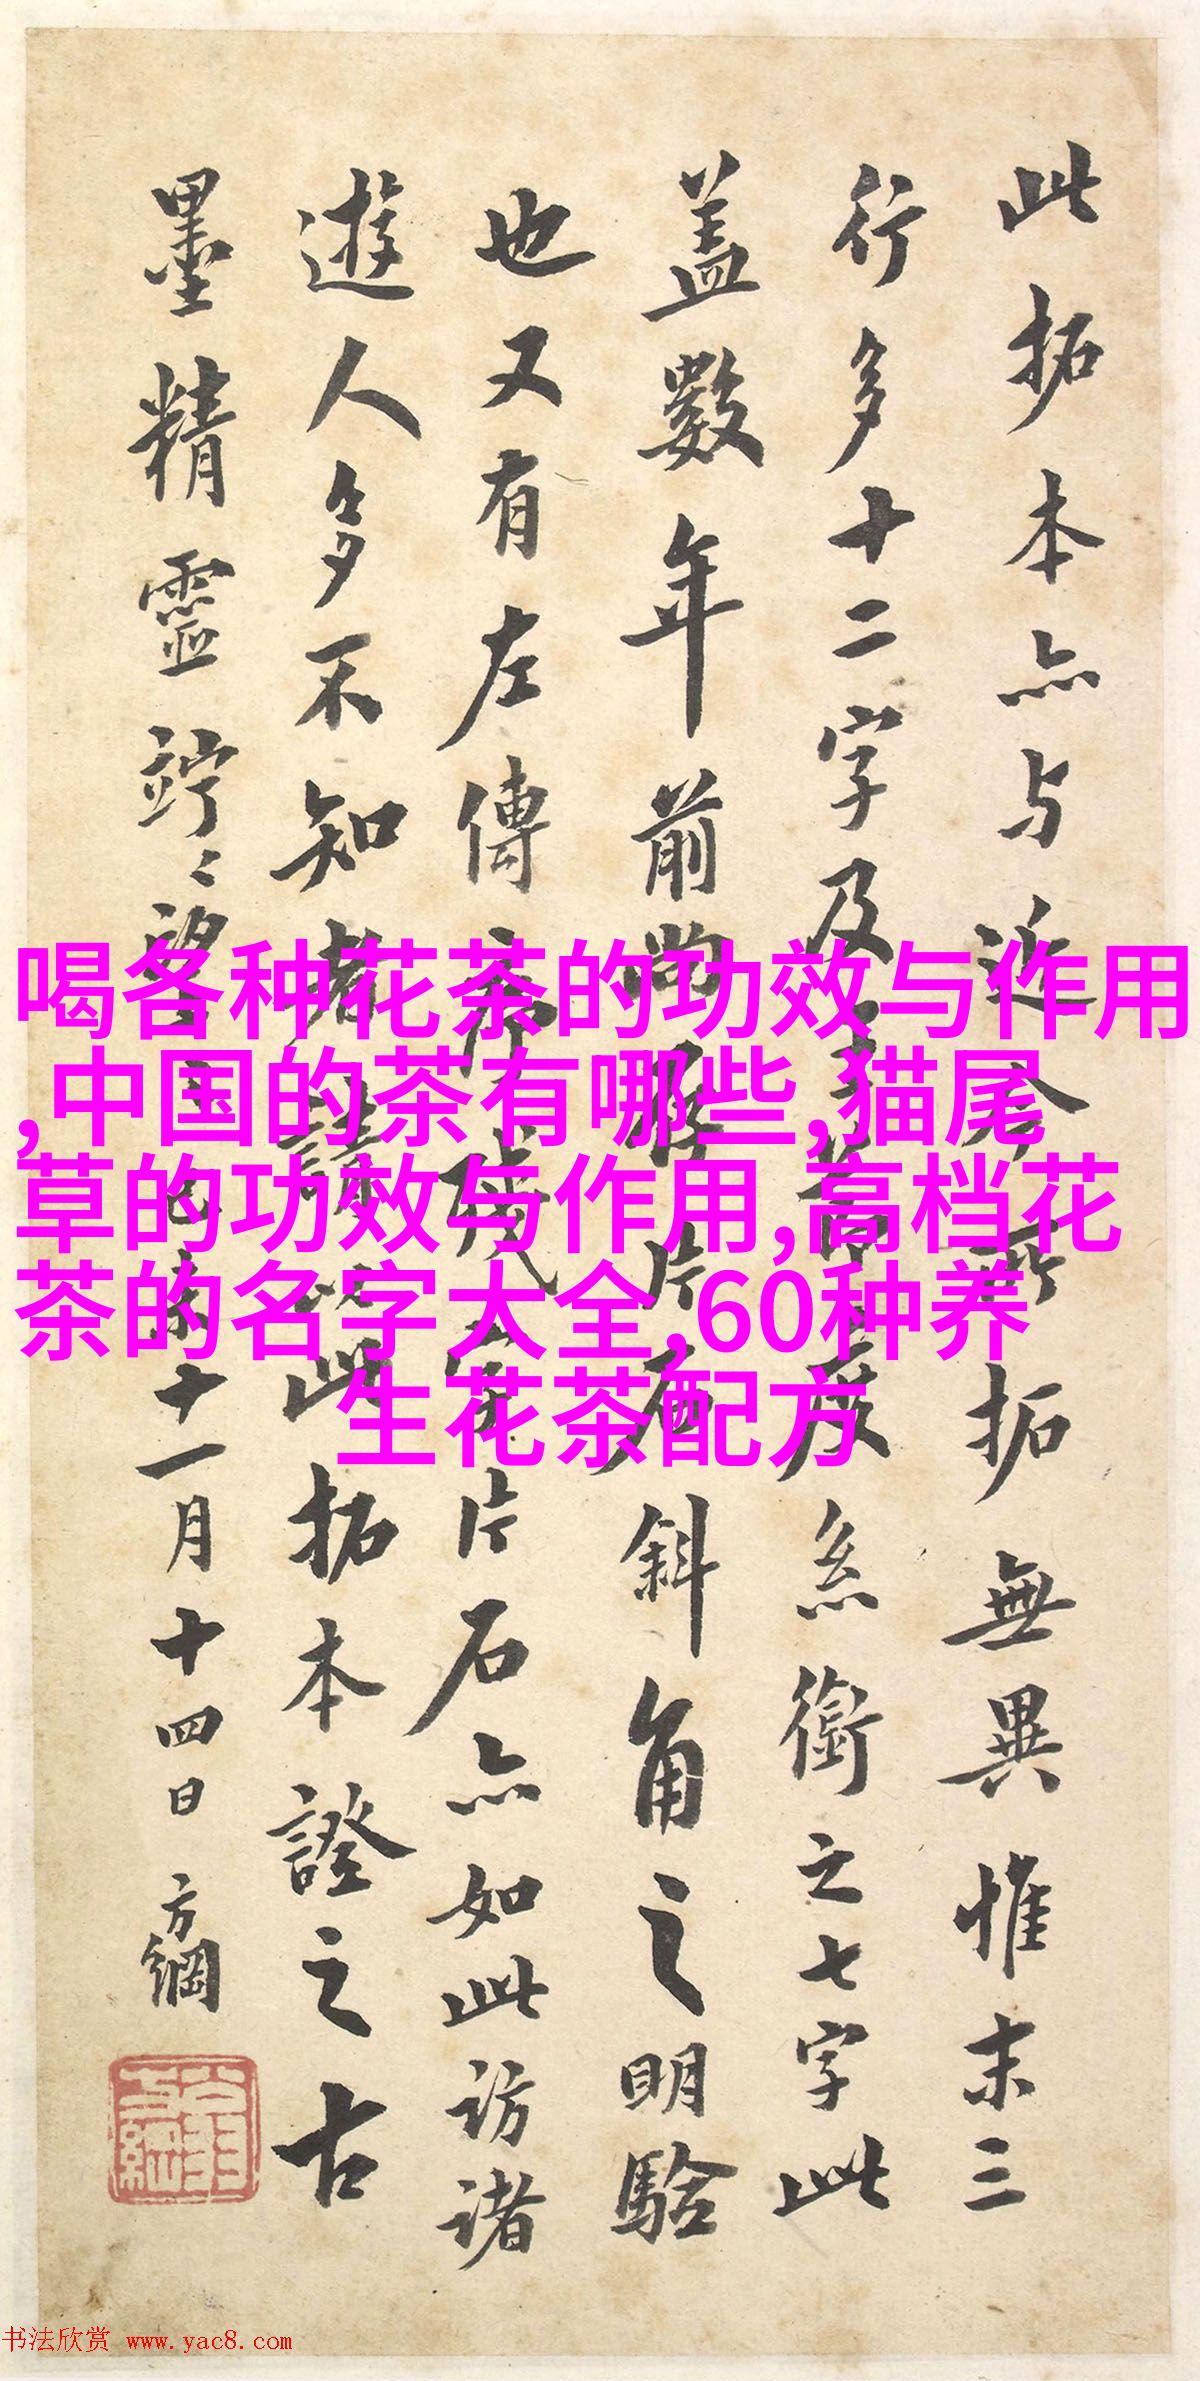 喝各种花茶的功效与作用
,中国的茶有哪些,猫尾
草的功效与作用,高档花
茶的名字大全,60种养
生花茶配方
此拓本亦与近今所拓無異惟末三
行多十二字及
絲銜之七字此
蓋數年前尚
片石斜角之明驗
也又有左傳
字片石亦如此訪諸
遊人多不知者請以此拓本證之古
墨精靈
十一月十四日方綱
书法欣赏 www.yac8.com